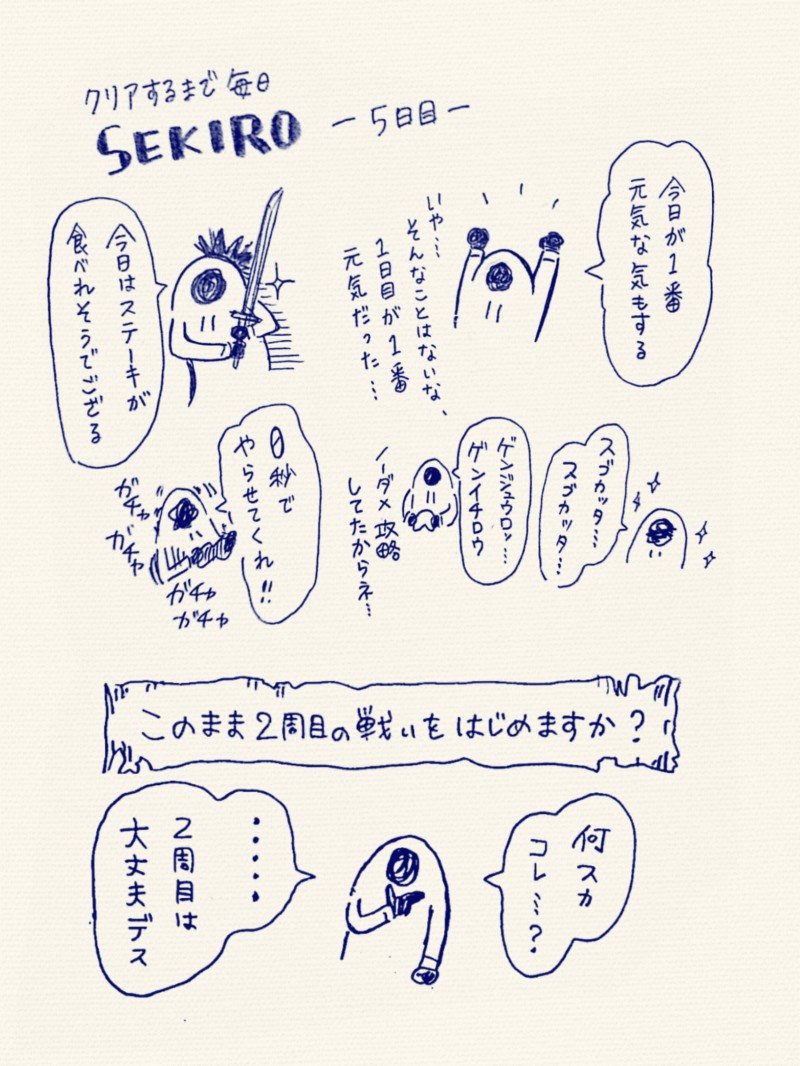 クリアするまで毎日
SEKIRO
ー5日目ー
今日が1番
元気な気もする
いや…
そんなことはないな、
1日目が1番
元気だった…
今日はステーキが
食べれそうでござる
スゴカッタ…
スゴカッタ…
ゲンジュウロッ…
ゲンイチロウ
ノーダメ攻略
してたからネ…
0秒で
やらせてくれ!!
ガチャ
ガチャ
ガチャ
ガチャ
このまま2周目の戦いをはじめますか?
何スカ
コレ…?
・・・・・
2周目は
大丈夫デス